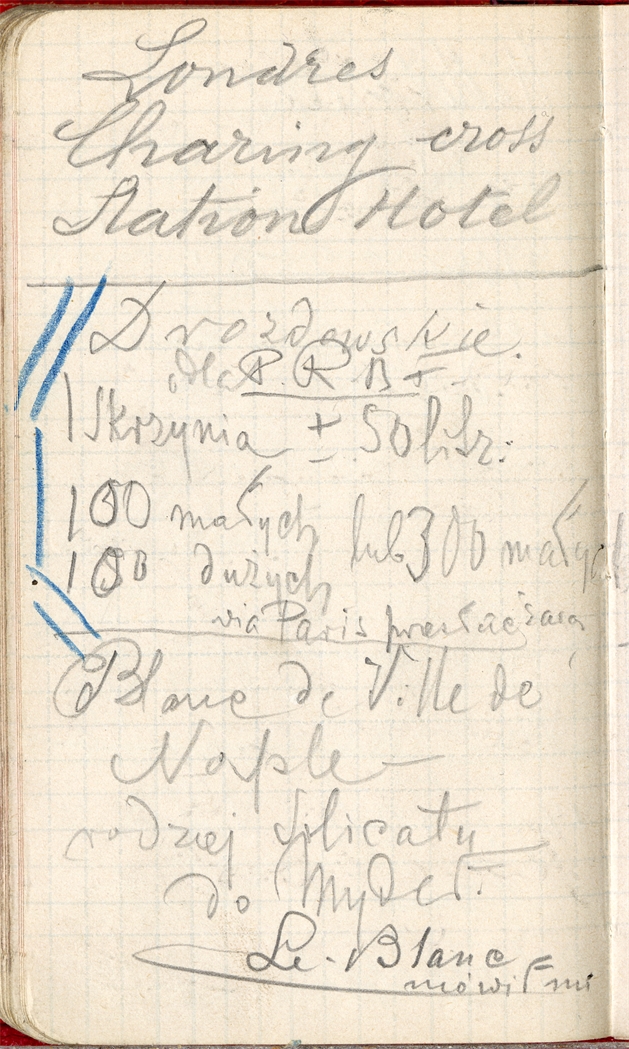 Londres
Charing cross
Station Hotel
Drozdowskie.
dla P. R. B
1 Skrzynia ± 50 
100 małych lub 300 małych
100 dużych
via Paris przesłać zaraz
Blanc de Ville de
Naple —
rodzaj Silicatu
do Mydeł.
Le-Blanc
mówił mi